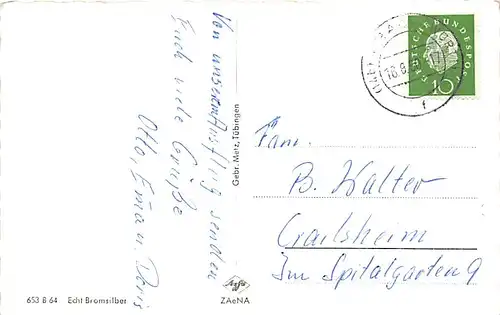 Von unserem Ausflug senden
Euch viele Grüße
Otto, Erna u. Doris
Gebr. Metz, Tübingen
DEUTSCHE BUNDESPOST
10
Fam.
B. Walter
Crailsheim
Im Spitalgarten 9
653 B 64 Echt Bromsilber
Agfa
ZAeNA